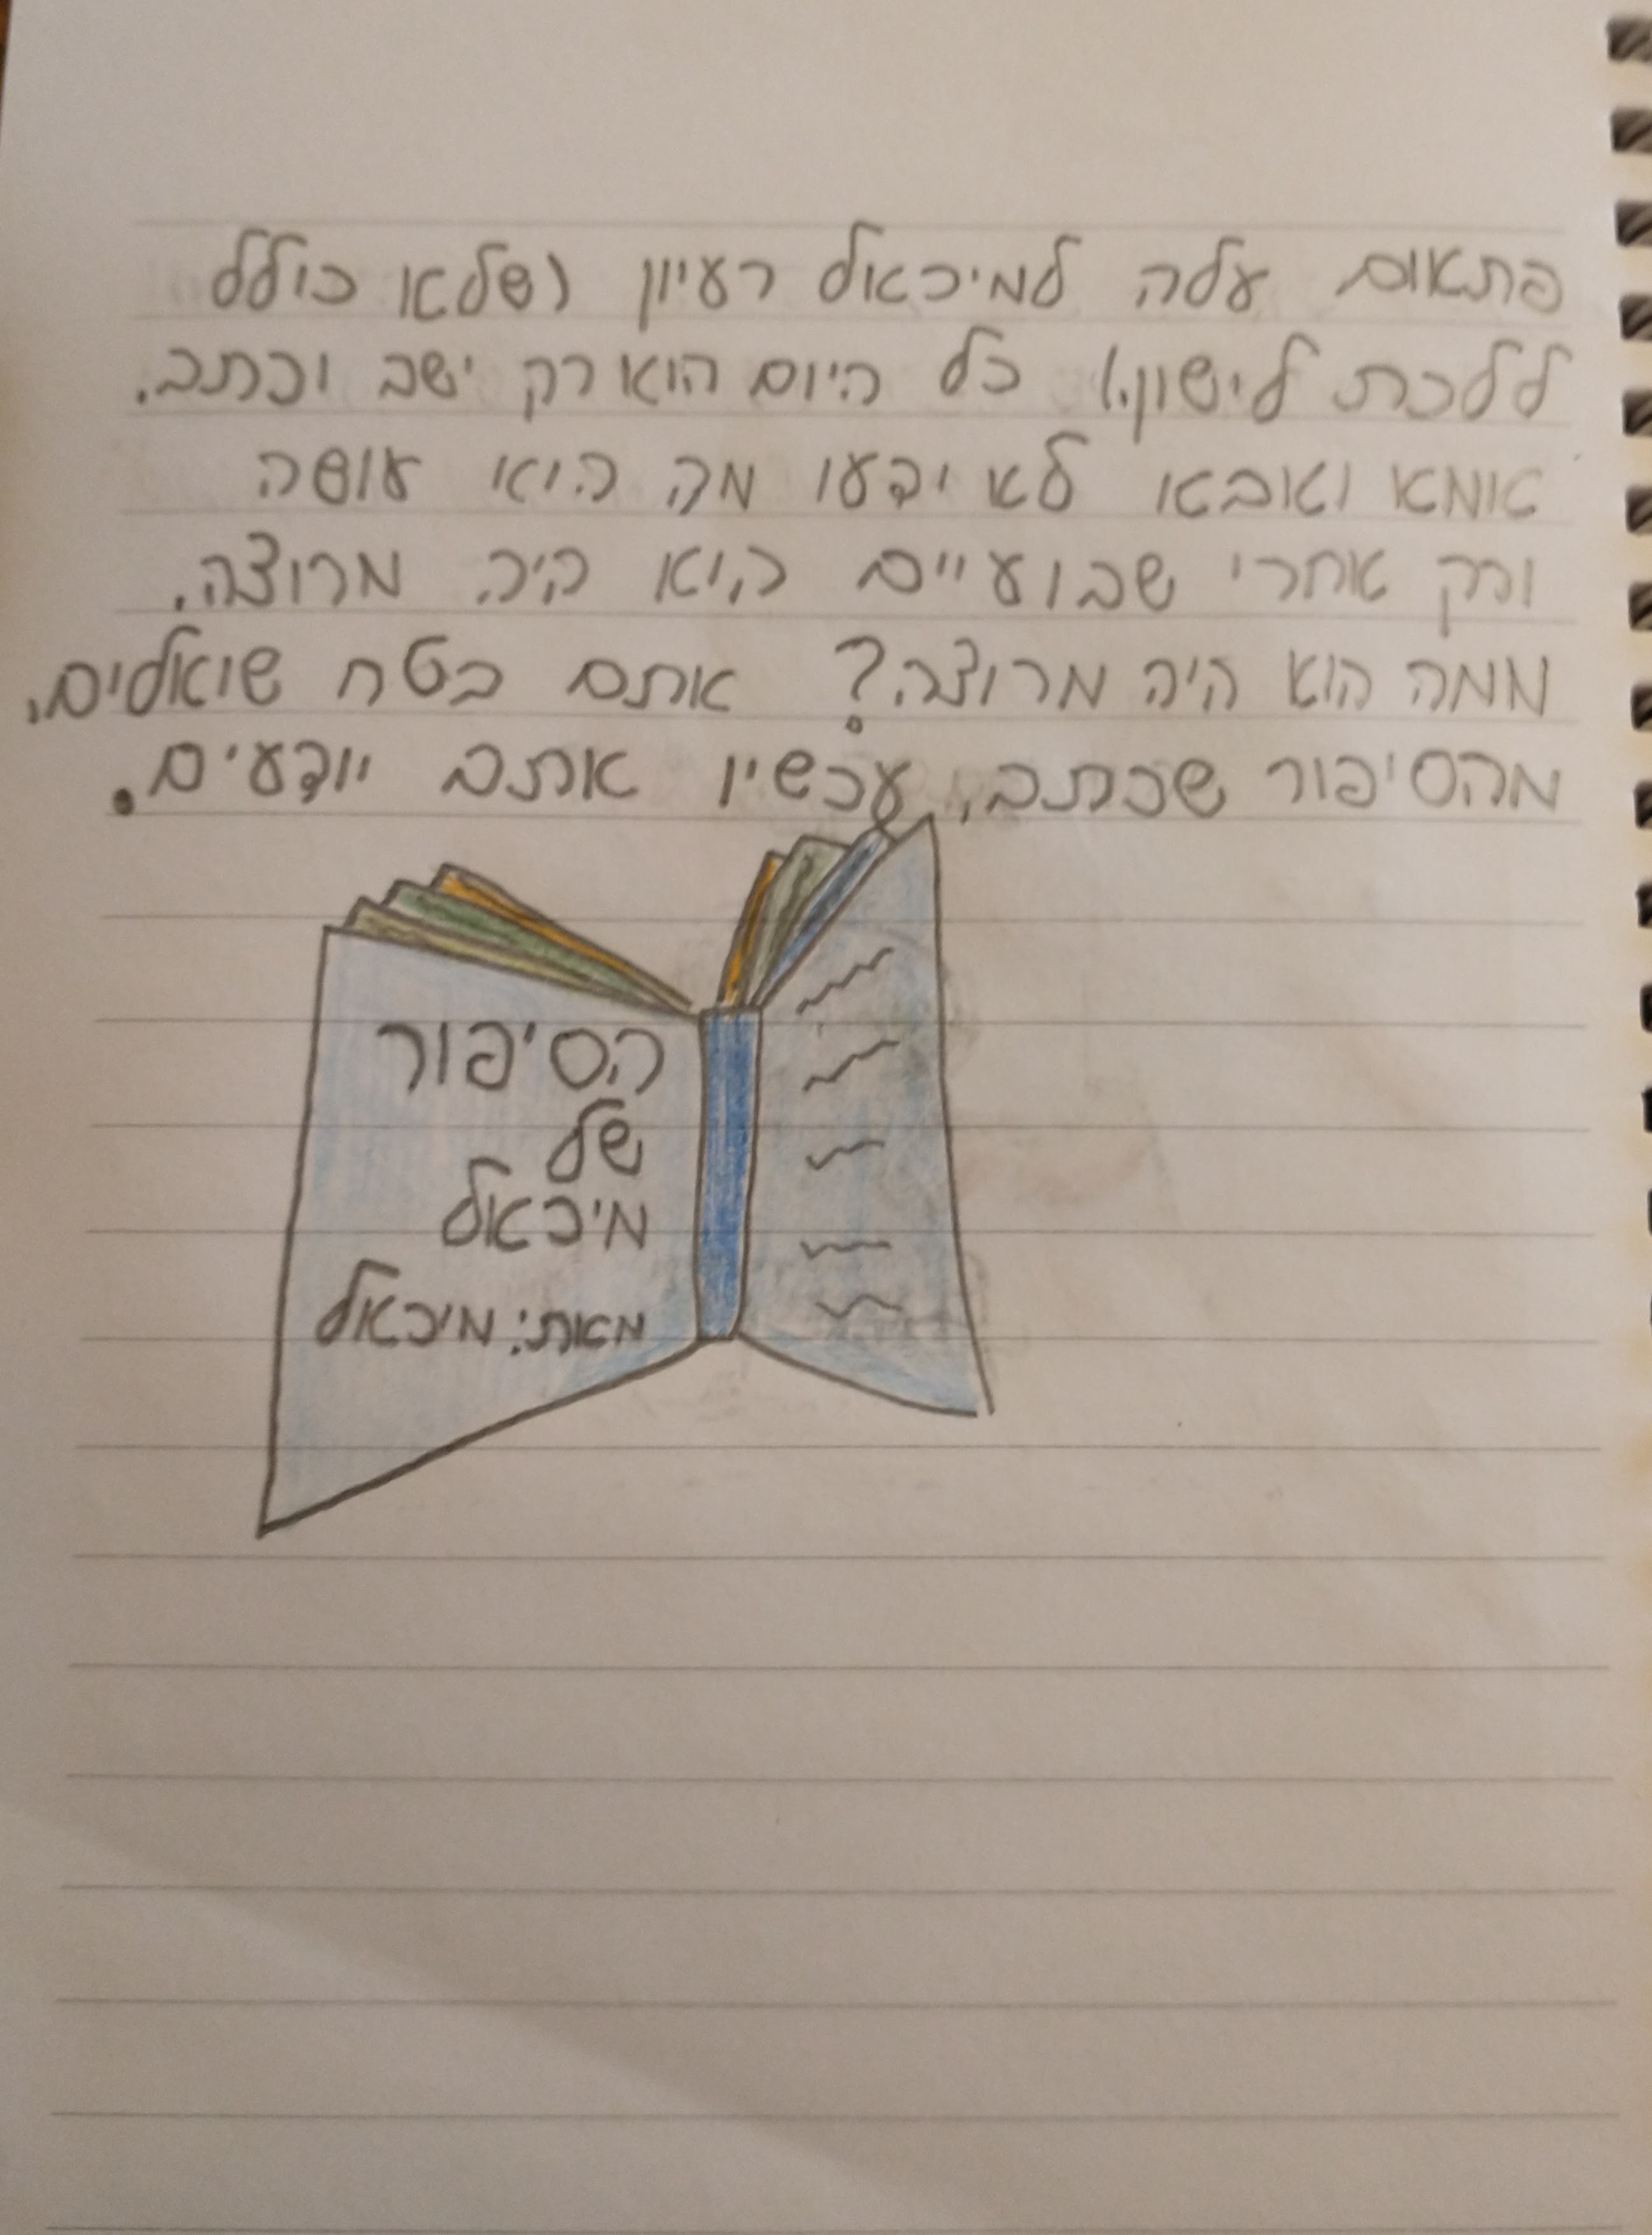 פתאום עלה למיכאל רעיון (שלא כולל
ללכת לישון.) כל היום הוא רק ישב וכתב.
אמא ואבא לא ידעו מה הוא עושה
ורק אחרי שבועיים הוא היה מרוצה.
ממה הוא היה מרוצה? אתם בטח שואלים,
מהסיפור שכתב, עכשיו אתם יודעים.
הסיפור
של
מיכאל
מאת: מיכאל